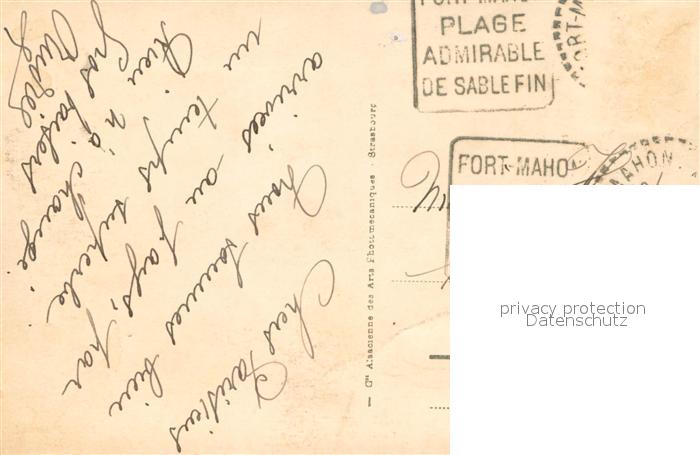 Chers Parisiens
Nous sommes bien
arrivés au pays, par
un temps superbe.
Rien n'a changé.
Gros baisers
Cie Alsacienne des Arts Photomécaniques - Strasbourg
FORT-MAHON
PLAGE
ADMIRABLE
DE SABLE FIN
FORT-M
FORT-MAHO
MAHON
privacy protection
Datenschutz